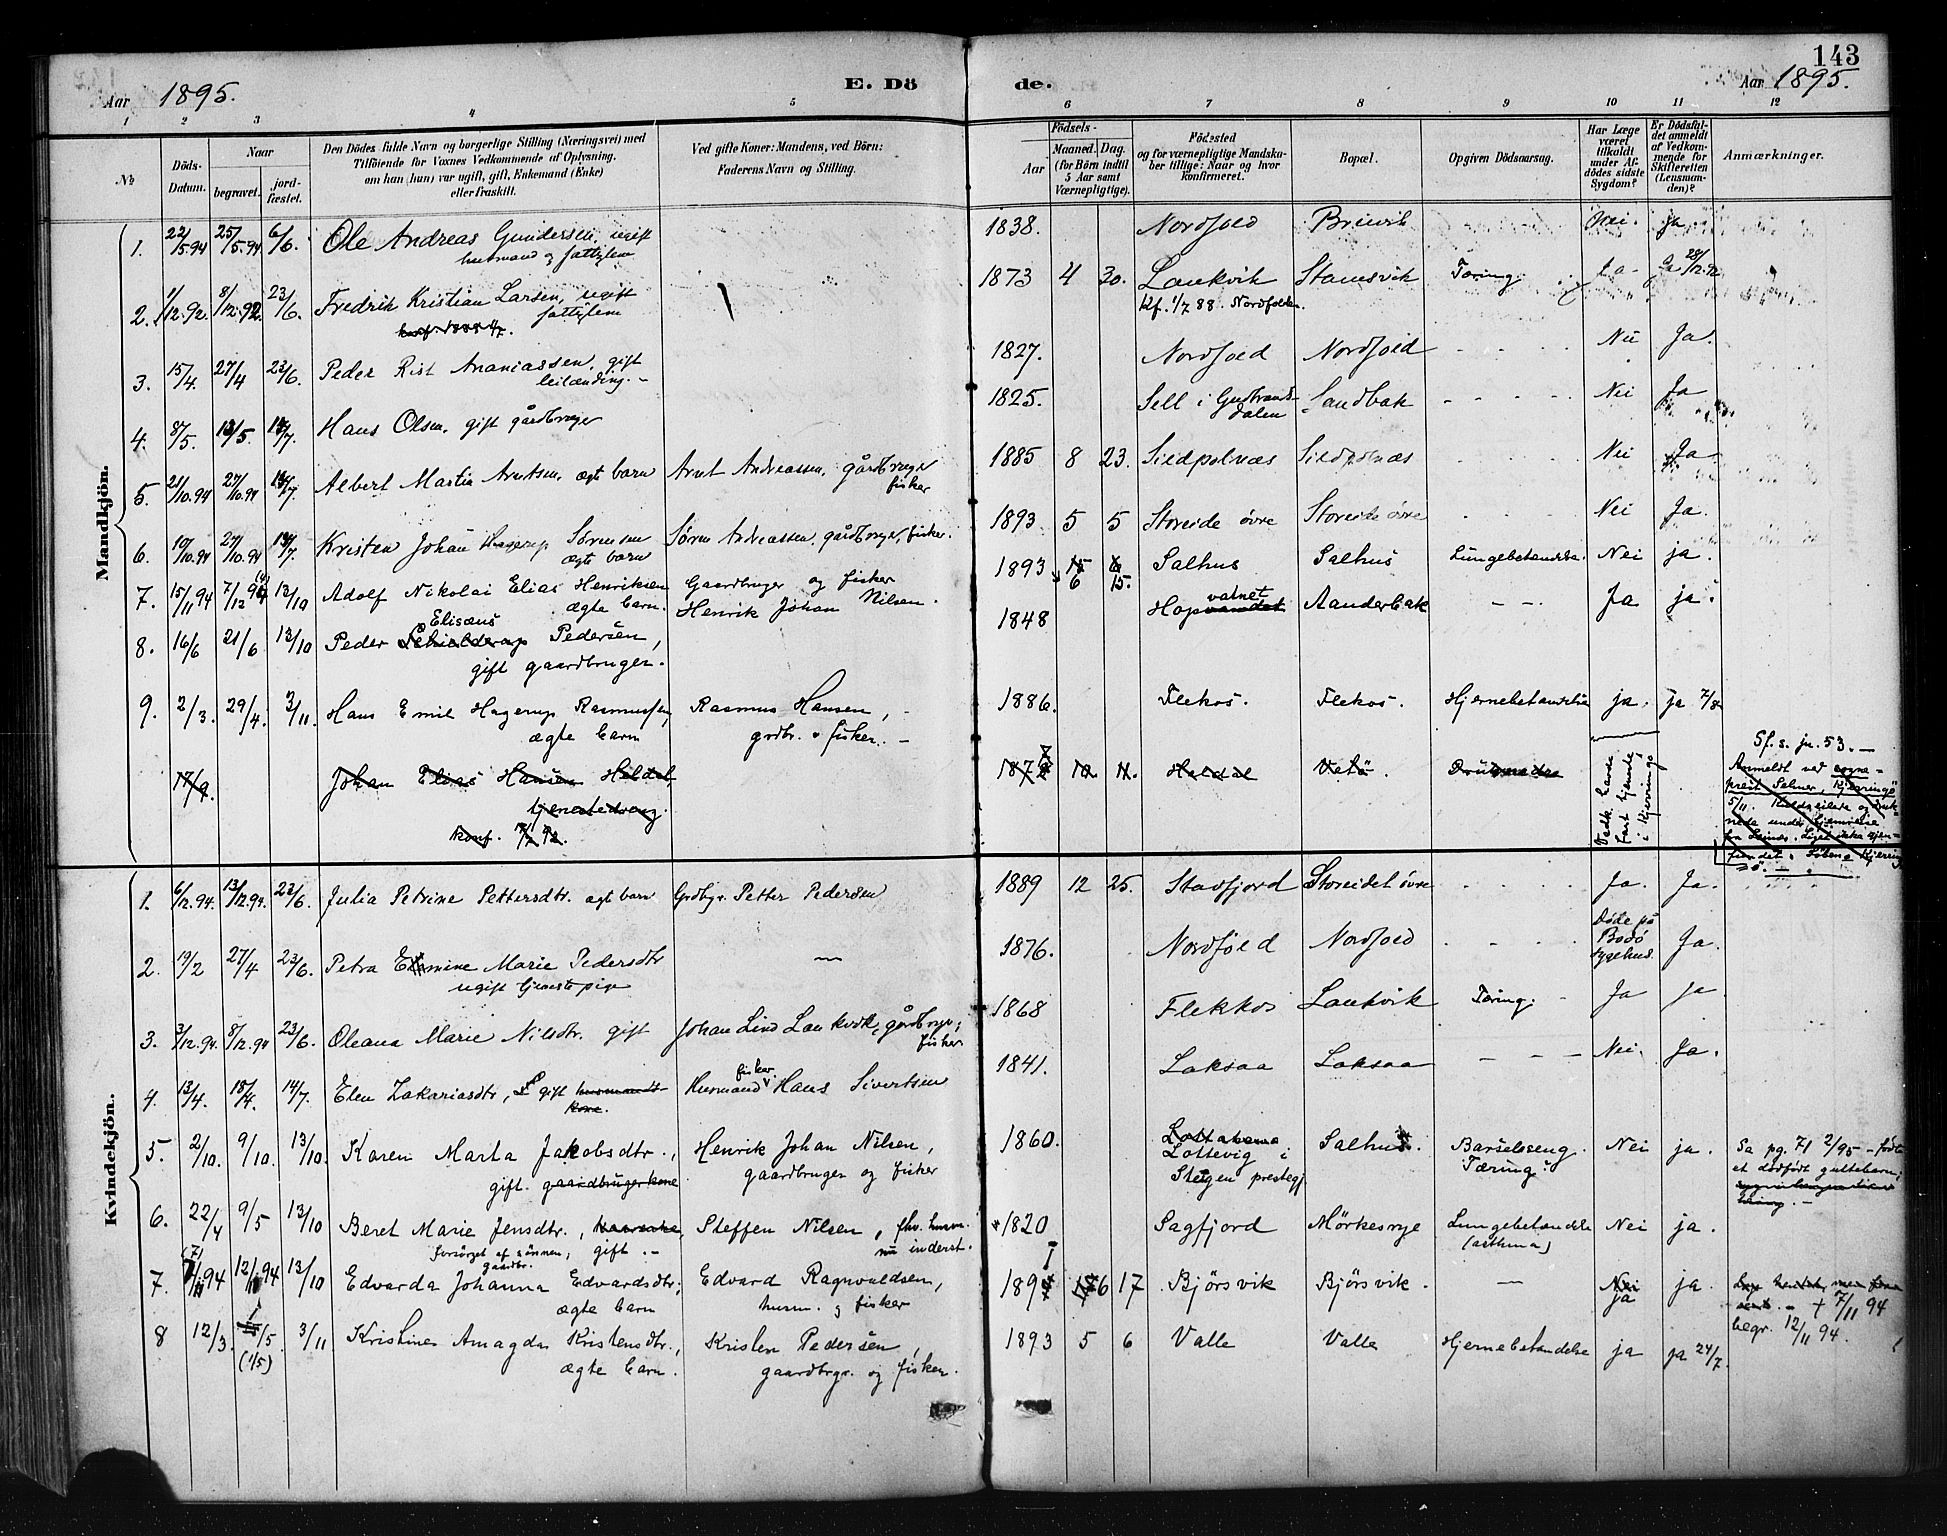 143
Aar 1895.
E. Döde.
Aar 1895.
1 2 3 4 5 6 7 8 9 10 11 12
№
Döds-Datum.
Naar
begravet.
jordfæstet.
Den Dödes fulde Navn og borgerlige Stilling (Næringsvei) med
Tilföiende for Voxnes Vedkommende af Oplysning.
om han (hun) var ugift, gift, Enkemand (Enke)
eller fraskilt.
Ved gifte Koner: Mandens, ved Börn:
Faderens Navn og Stilling.
Födsels-
Aar
Maaned. Dag.
(for Börn indtil
5 Aar samt
Værnepligtige).
Födested
og for værnepligtige Mandska-
ber tillige: Naar og hvor
konfirmeret.
Bopæl.
Opgiven Dödsaarsag.
Har Læge
været
tilkaldt
under Af-
dödes sidste
Sygdom?
Er Dödsfal-
det anmeldt
af Vedkom-
mende for
Skifteretten
(Lensman-
den)?
Anmærkninger.
Mandkjön.
1. 22/5.94 25/5.94 6/6. Ole Andreas Gundersen, ugift 1838. Nordfold Breivik Nei. ja.
husmand og fattiglem
2. 1/12.92. 8/12.92 23/6. Fredrik Kristian Larsen, ugift 1873 4 30. Laukvik Stamsvik Tæring. Ja- Ja 28/12.92
fattiglem Kf. 1/7 88. Nordfolden.
konf. 1888 1/7.
3. 15/4. 27/4 23/6. Peder Rist Ananiassen, gift 1827. Nordfold Nordfold - - - - Nei Ja.
leilænding. -
4. 8/5. 13/5 14/7. Hans Olsen, gift gårdbruger 1825. Sell i Gudbrands-dalen Sandbak - - - - Nei Ja
5. 21/10.94 27/10.94 14/7. Albert Martin Arntsen, ægte barn Arnt Andreassen, gårdbruger 1885 8 23. Sildpolnæs Sildpolnæs Nei Ja
fisker
6. 19/10.94 27/10.94 14/7. Kristen Johan Hagerup Sørensen Søren Andreassen, gårdbruger, fisker. 1893 5 5 Storeide övre Storeide övre Nei Ja.
ægte barn
7. 15/11 94 7/12 94 13/10 Adolf Nikolai Elias Henriksen Gaardbruger og fisker 1893 6 15. Salhus Salhus Lungebetændelse. Nei ja.
ægte barn. Henrik Johan Nilsen.
8. 16/6 21/6 13/10 Peder Schielderup Elisæus Pedersen, 1848 Hopvandet vatnet Aanderbak - - Ja ja.
gift gaardbruger.
9. 2/3. 29/4. 3/11. Hans Emil Hagerup Rasmussen, Rasmus Hansen, 1886. Flekos. Flekos. Hjernebetændelse ja. ja 7/8
ægte barn grdbr. & fisker. -
17/9. Johan Elias Hansen Heldal, 187 10. 11. Heldal Vetö. Druknede
tjenestedreng.
konf.
Sf. s. jn. 53. -
Anmeldt ved sogne-
prest Selmer, Kjerringö
5/11. Kuldseilede og druk-
nede under hjemreise
fra Leines. Liget ikke gjen-
fundet.
Kvindekjön.
1. 6/12.94. 13/12.94. 23/6. Julia Petrine Pettersdtr. ægt barn Grdbgr. Petter Pedersen 1889 12 25. Stavfjord Storeidet övre Ja. Ja.
2. 19/2 27/4 23/6. Petra Emine Marie Pedersdtr — 1876. Nordfold Nordfold Døde på
Bodö
sygehus. Ja.
ugift tjenestepige
3. 3/12.94. 8/12.94 23/6. Oleana Marie Nilsdtr. gift Johan Lind Laukvik, gårdbruger, 1868 Flekkos Laukvik Tæring. - Ja ja
fisker
4. 13/4. 18/4. 14/7. Elen Zakariasdtr, gift husmands-kone. Husmand fisker Hans Sivertsen 1841. Laksaa Laksaa - - - Nei. Ja.
5. 2/10. 9/10. 13/10. Karen Marta Jakobsdtr., Henrik Johan Nilsen, 1860. Lottevig i Salhus. Barselseng. Nei ja. Sa pg. 71 2/95 - födte
gift. gaardbrugerkone gaardbruger og fisker Steigen prestegj Tæring? et dödfödt guttebarn;
6. 22/4 9/5 13/10 Beret Marie Jensdtr., gift. - Steffen Nilsen, fhv. husm. 1820 Sagfjord Mörkesvye Lungebetændelse Nei ja.
forsörget af sönnen, gaardbr. nu inderst. (asthma)
7. 7/11 94 12/11 94 13/10 Edvarda Johanna Edvardsdtr; Edvard Ragnvaldsen, 189 6 17 Björsvik Björsvik. — Nei ja ja.
ægte barn husm. og fisker + 7/11 94
begr. 12/11 94.
8 12/3. /5. (1/5) 3/11 Kristine Amagda Kristensdtr., Kristen Pedersen, 1893 5 6 Valle Valle Hjernebetændelse ja ja 24/7.
ægte barn. gaardbrgr. og fisker.